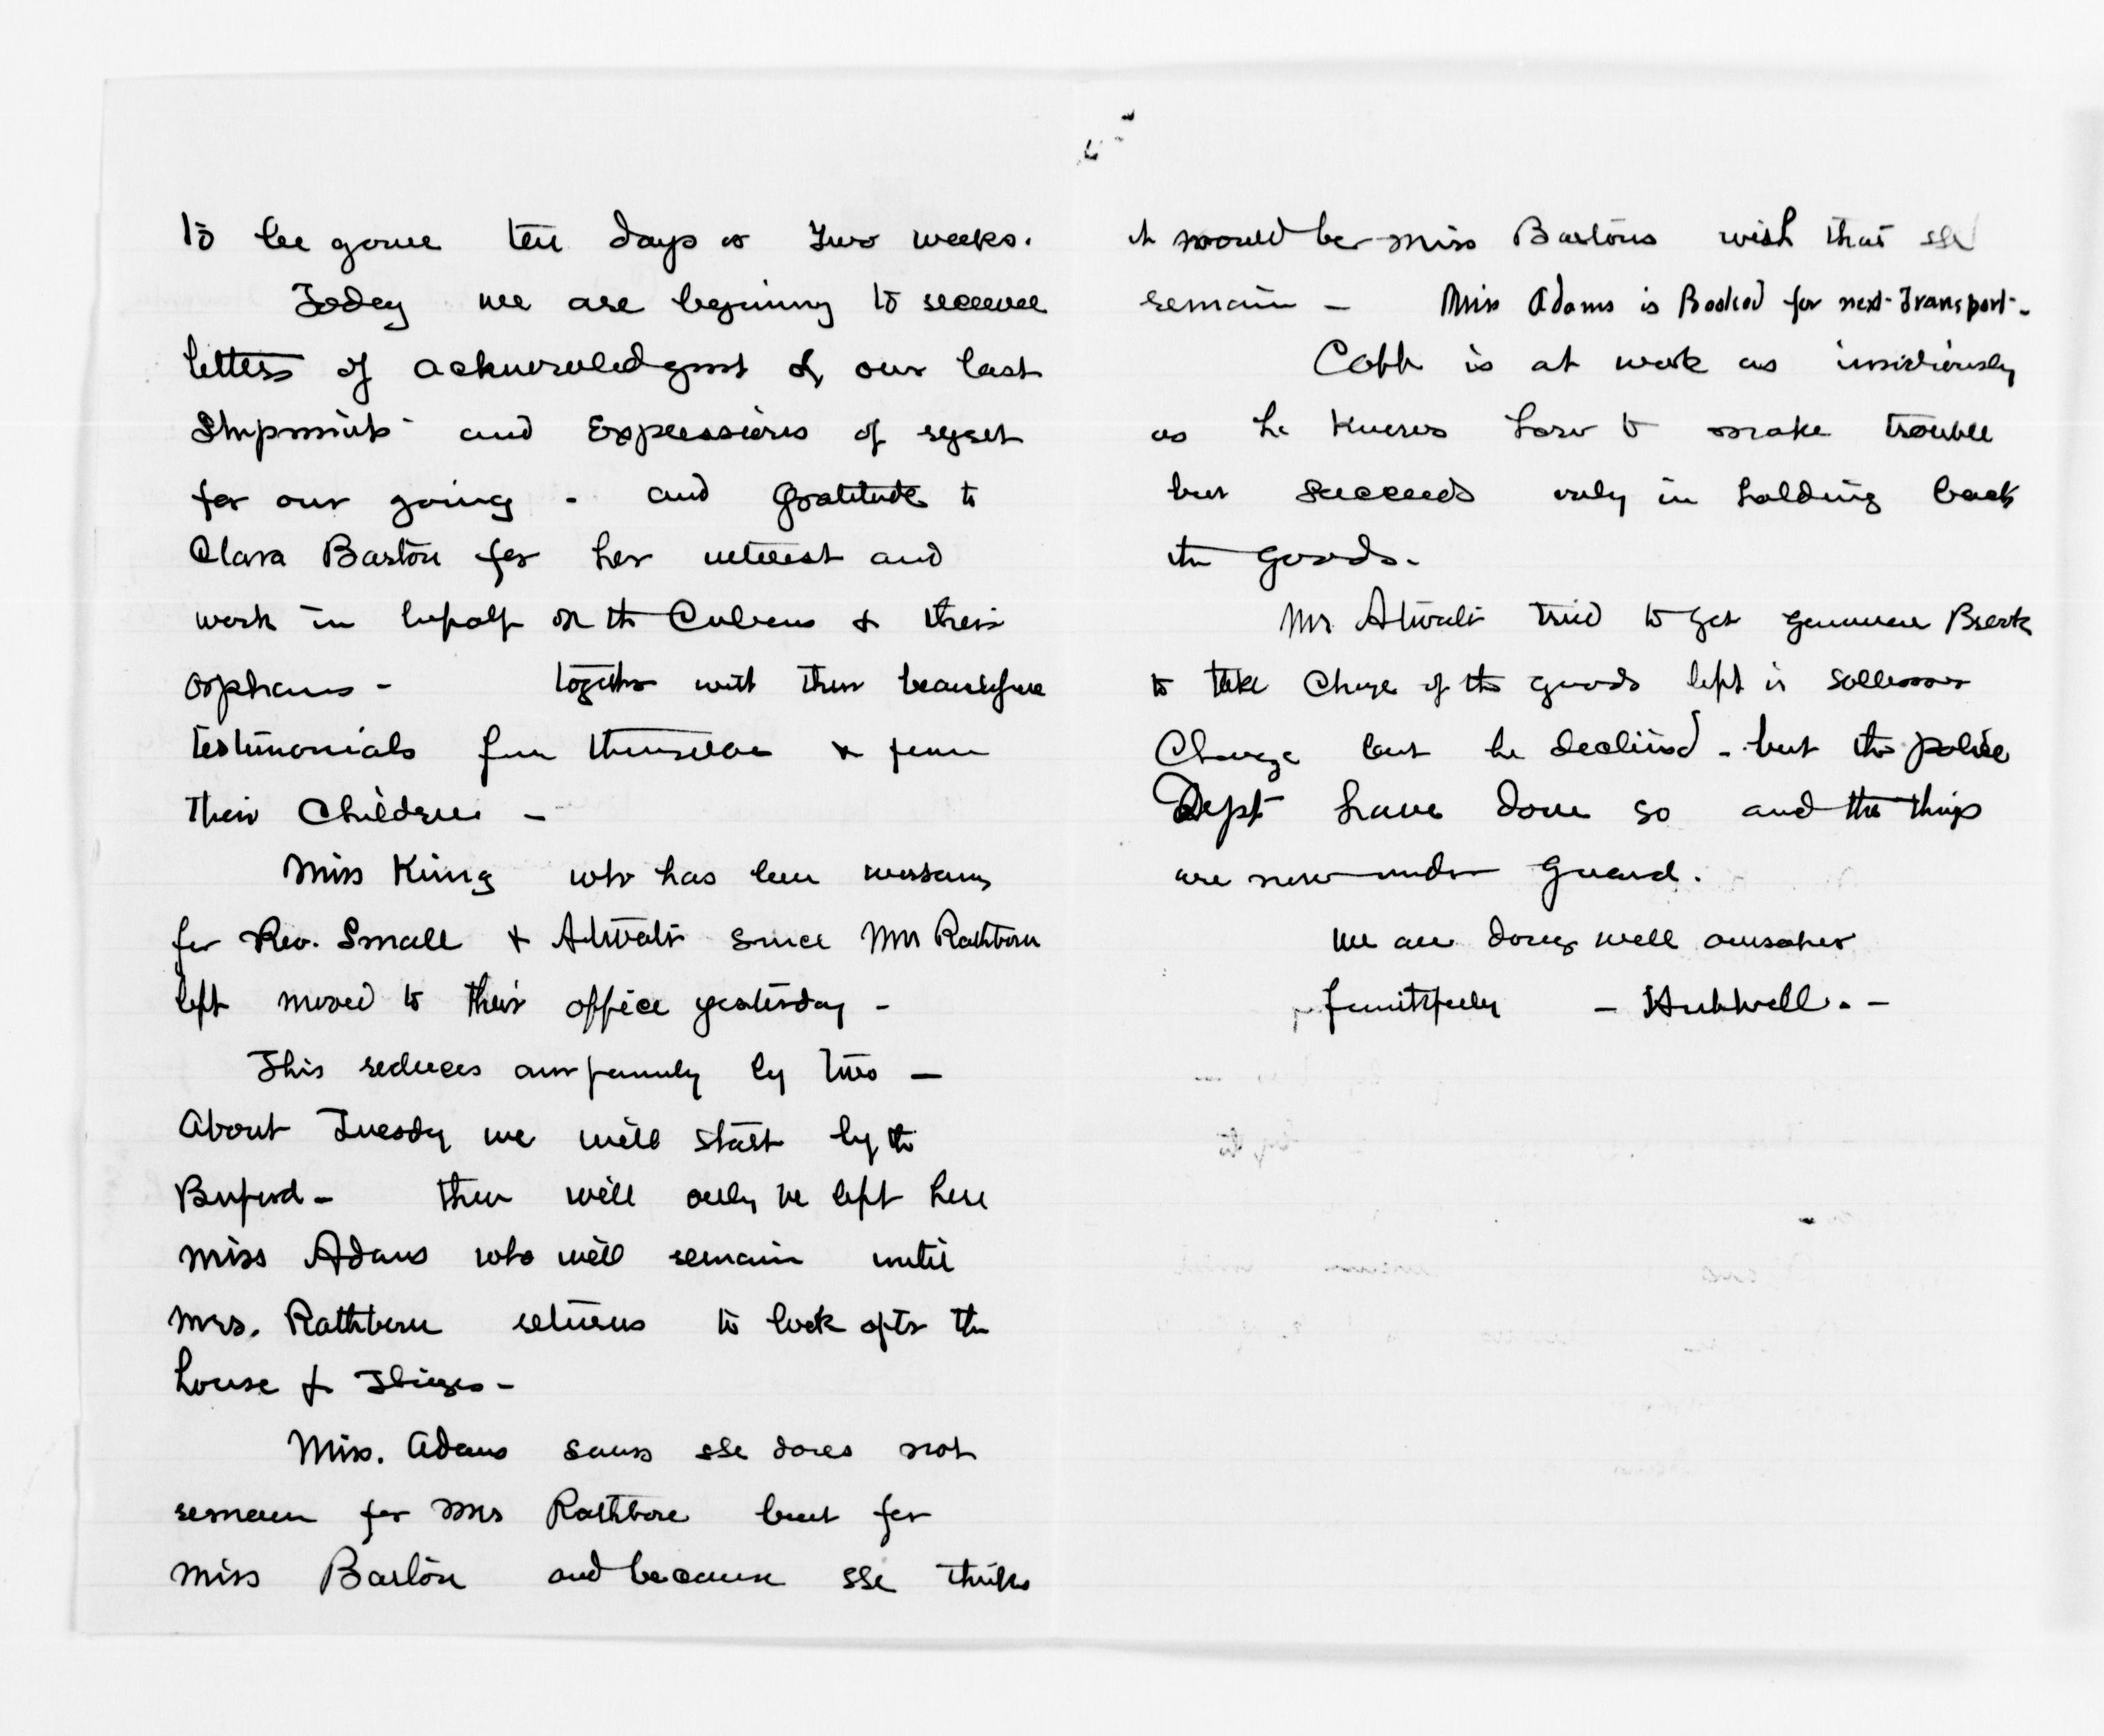 to be gone ten days or two weeks.
Today we are begining to receive
letters of acknowledgmnt of our last
shipments and expressions of regret
for our going - and gratitude to
Clara Barton for her interest and
work in behalf of the Cubans & their
orphans - together with their beautiful
testimonials from themselves & from
their Children -
Miss King who has been working
for Rev. Small & Atwater since Mrs Rathbone
left moved to their office yesterday -
This reduces our family by two -
About Tuesday we will start by the
Buford - there will only be left here
Miss Adams who will remain until
Mrs. Rathbone returns to look after the
house & Things -
Miss. Adams says she does not
remain for Mrs Rathbone but for
Miss Barton and because she thinks
it would be Miss Bartons wish that she
remain - Miss Adams is Booked for next Transport -
Cobb is at work as insidiously
as he knows how to make trouble
but succeeds only in holding back
the goods.
Mr Atwater tried to get
to take Charge of the goods left in
Charge but he declined - but the police
Dept have done so and the things
are now under guard.
We are doing well ourselves
faithfully - Hubbell. -